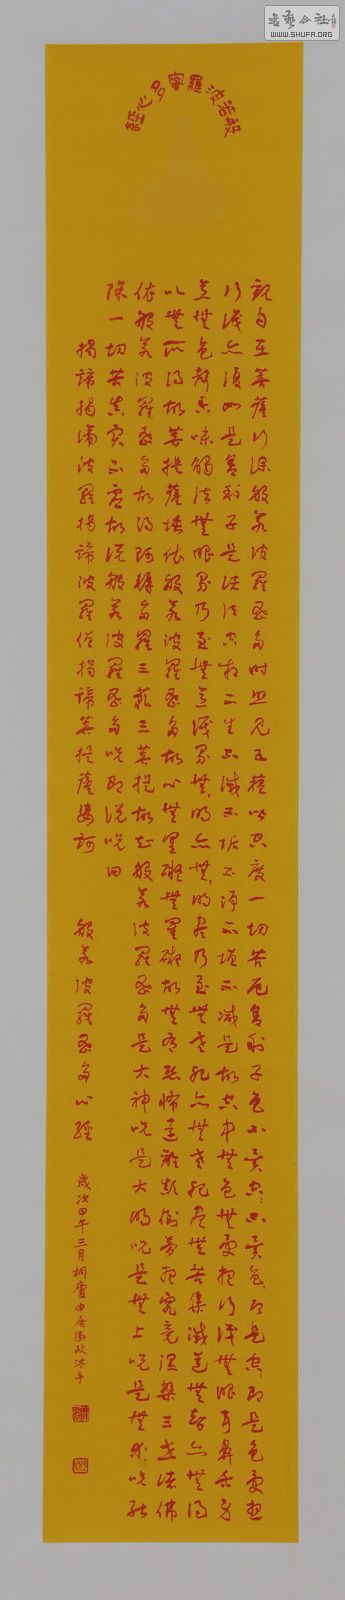 書藝公社
WWW.SHUFA.ORG
般若波羅蜜多心經
觀自在菩薩行深般若波羅蜜多時照見五蘊皆空度一切苦厄舍利子色不異空空不異色色即是空空即是色受想
行識亦復如是舍利子是諸法空相不生不滅不垢不淨不增不減是故空中無色無受想行識無眼耳鼻舌身
意無色聲香味觸法無眼界乃至無意識界無無明亦無無明盡乃至無老死亦無老死盡無苦集滅道無智亦無得
以無所得故菩提薩埵依般若波羅蜜多故心無罣礙無罣礙故無有恐怖遠離顛倒夢想究竟涅槃三世諸佛
依般若波羅蜜多故得阿耨多羅三藐三菩提故知般若波羅蜜多是大神咒是大明咒是無上咒是無等咒能
除一切苦真實不虛故說般若波羅蜜多咒即說咒曰
揭諦揭諦波羅揭諦波羅僧揭諦菩提薩婆訶 般若波羅蜜多心經
歲次甲午三月桐廬申屠衛政沐手